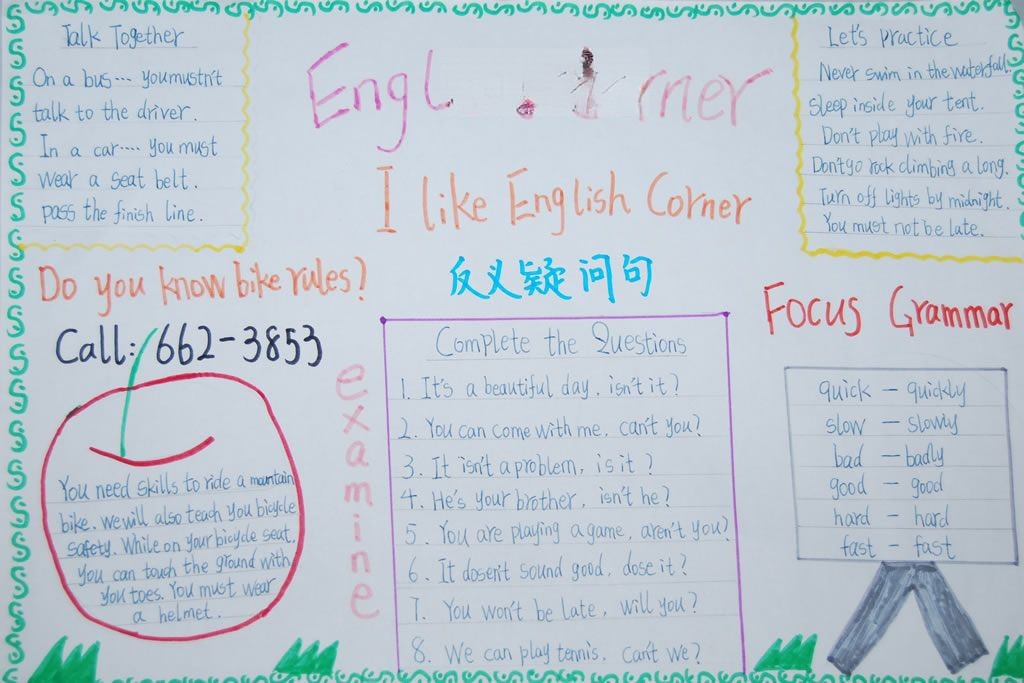 Talk Together
On a bus.... you mustn't
talk to the driver.
In a car.... you must
wear a seat belt.
pass the finish line.
Engl rner
I like English Corner
Let's Practice
Never swim in the waterfall.
sleep inside your tent.
Don't play with fire.
Don't go rock climbing a long.
Turn off lights by midnight.
You must not be late.
Do you know bike rules?
Call: 662-3853
You need skills to ride a mountain
bike. we will also teach you bicycle
safety. While on your bicycle seat.
you can touch the ground with
you toes. You must wear
a helmet.
examine
反义疑问句
Complete the Questions
1. It's a beautiful day, isn't it?
2. You can come with me, can't you?
3. It isn't a problem, is it?
4. He's your brother, isn't he?
5. You are playing a game, aren't you?
6. It dosen't sound good, dose it?
7. You won't be late, will you?
8. We can play tennis, can't we?
Focus Grammar
quick - quickly
slow - slowly
bad - badly
good - good
hard - hard
fast - fast